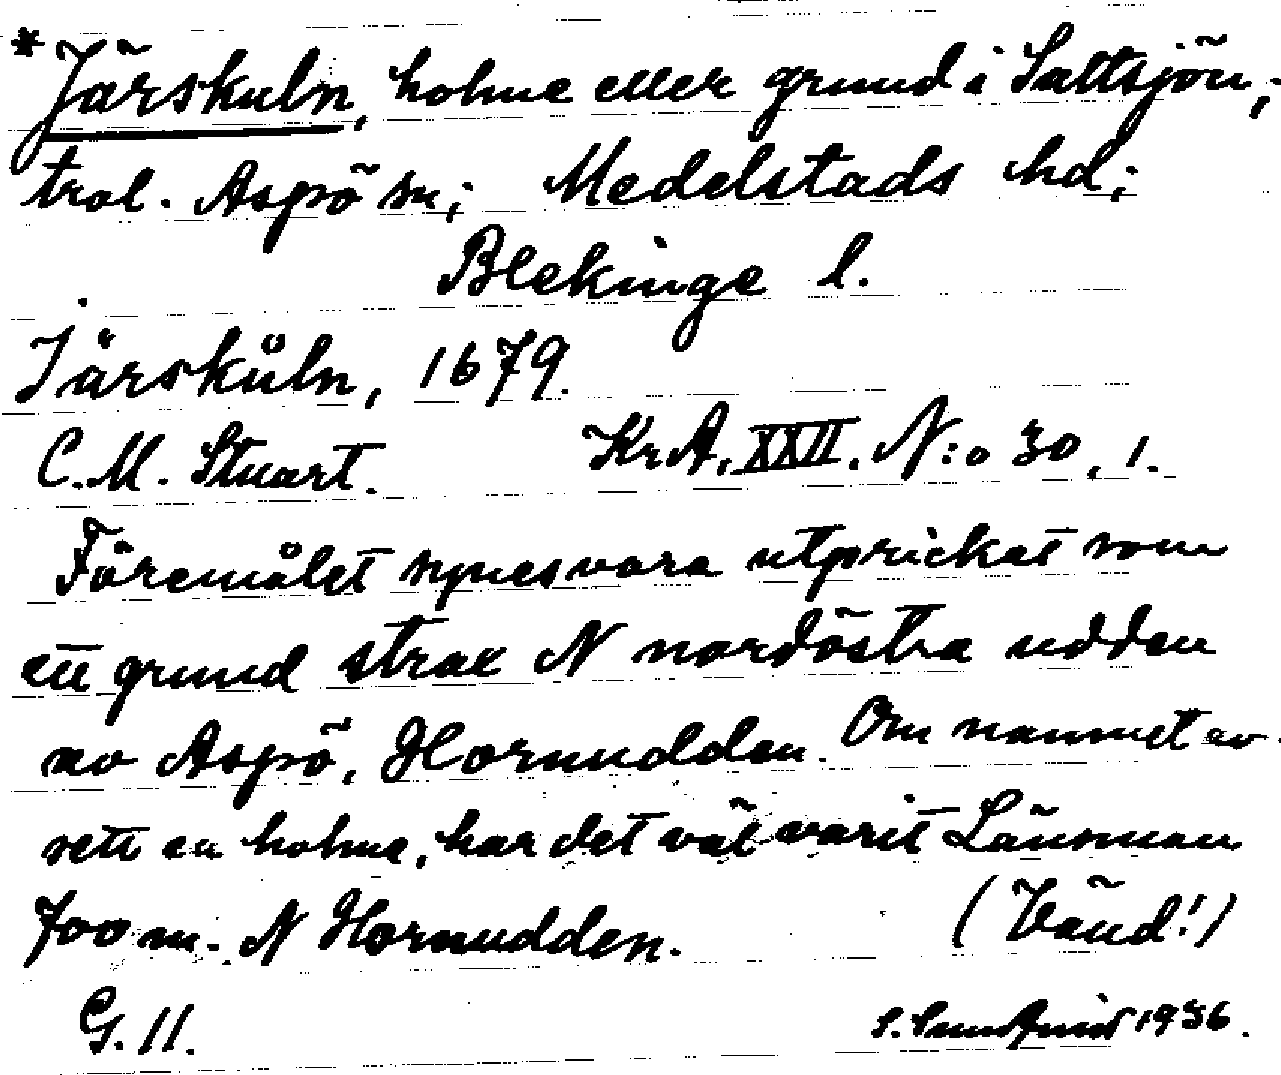 *Järskuln, holme eller grund i Saltsjön,;
trol. Aspö sn; Medelstads hd;
Blekinge l.
Järskůln, 1679.
C.M. Stuart. KrA, XXII. N:o 30, 1.
Föremålet synes vara utprickat som
ett grund strax N nordöstra udden
av Aspö, Hornudden. Om namnet av-
sett en holme, har det väl varit Länsman
700 m. N Hornudden. (Vänd!)
G. 11. S. Sundquist 1936.